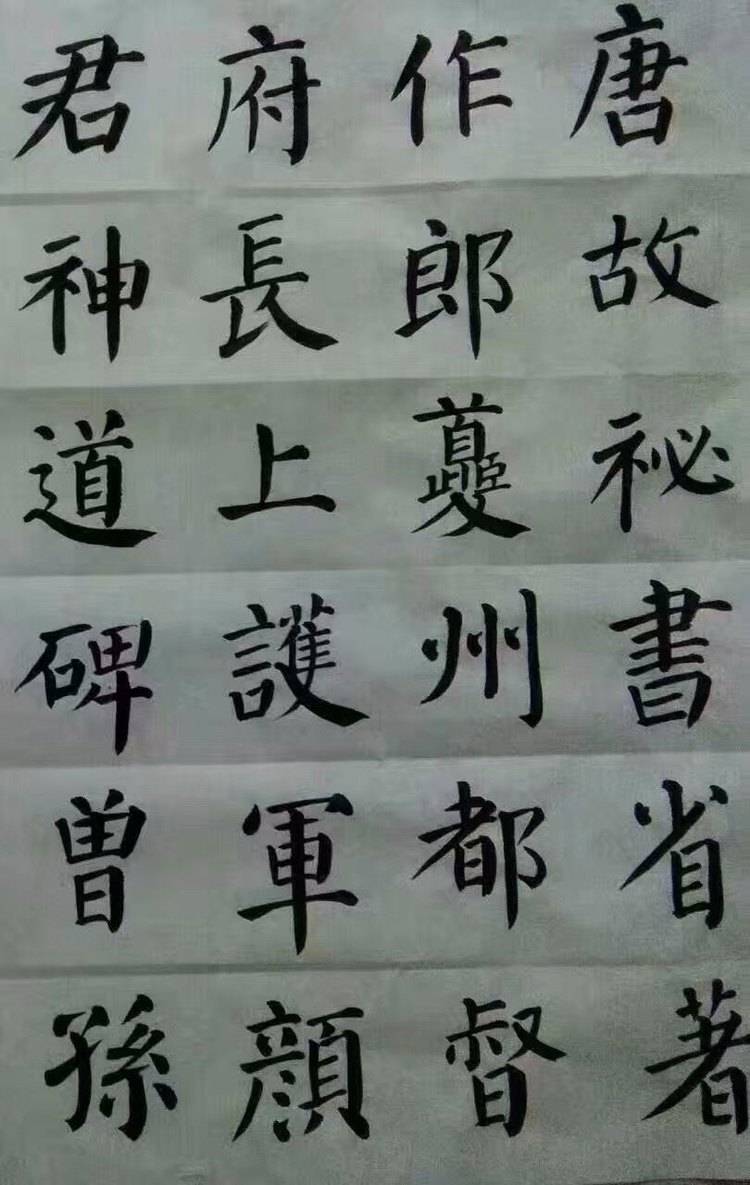 唐故祕書省著
作郎夔州都督
府長上護軍顔
君神道碑曾孫